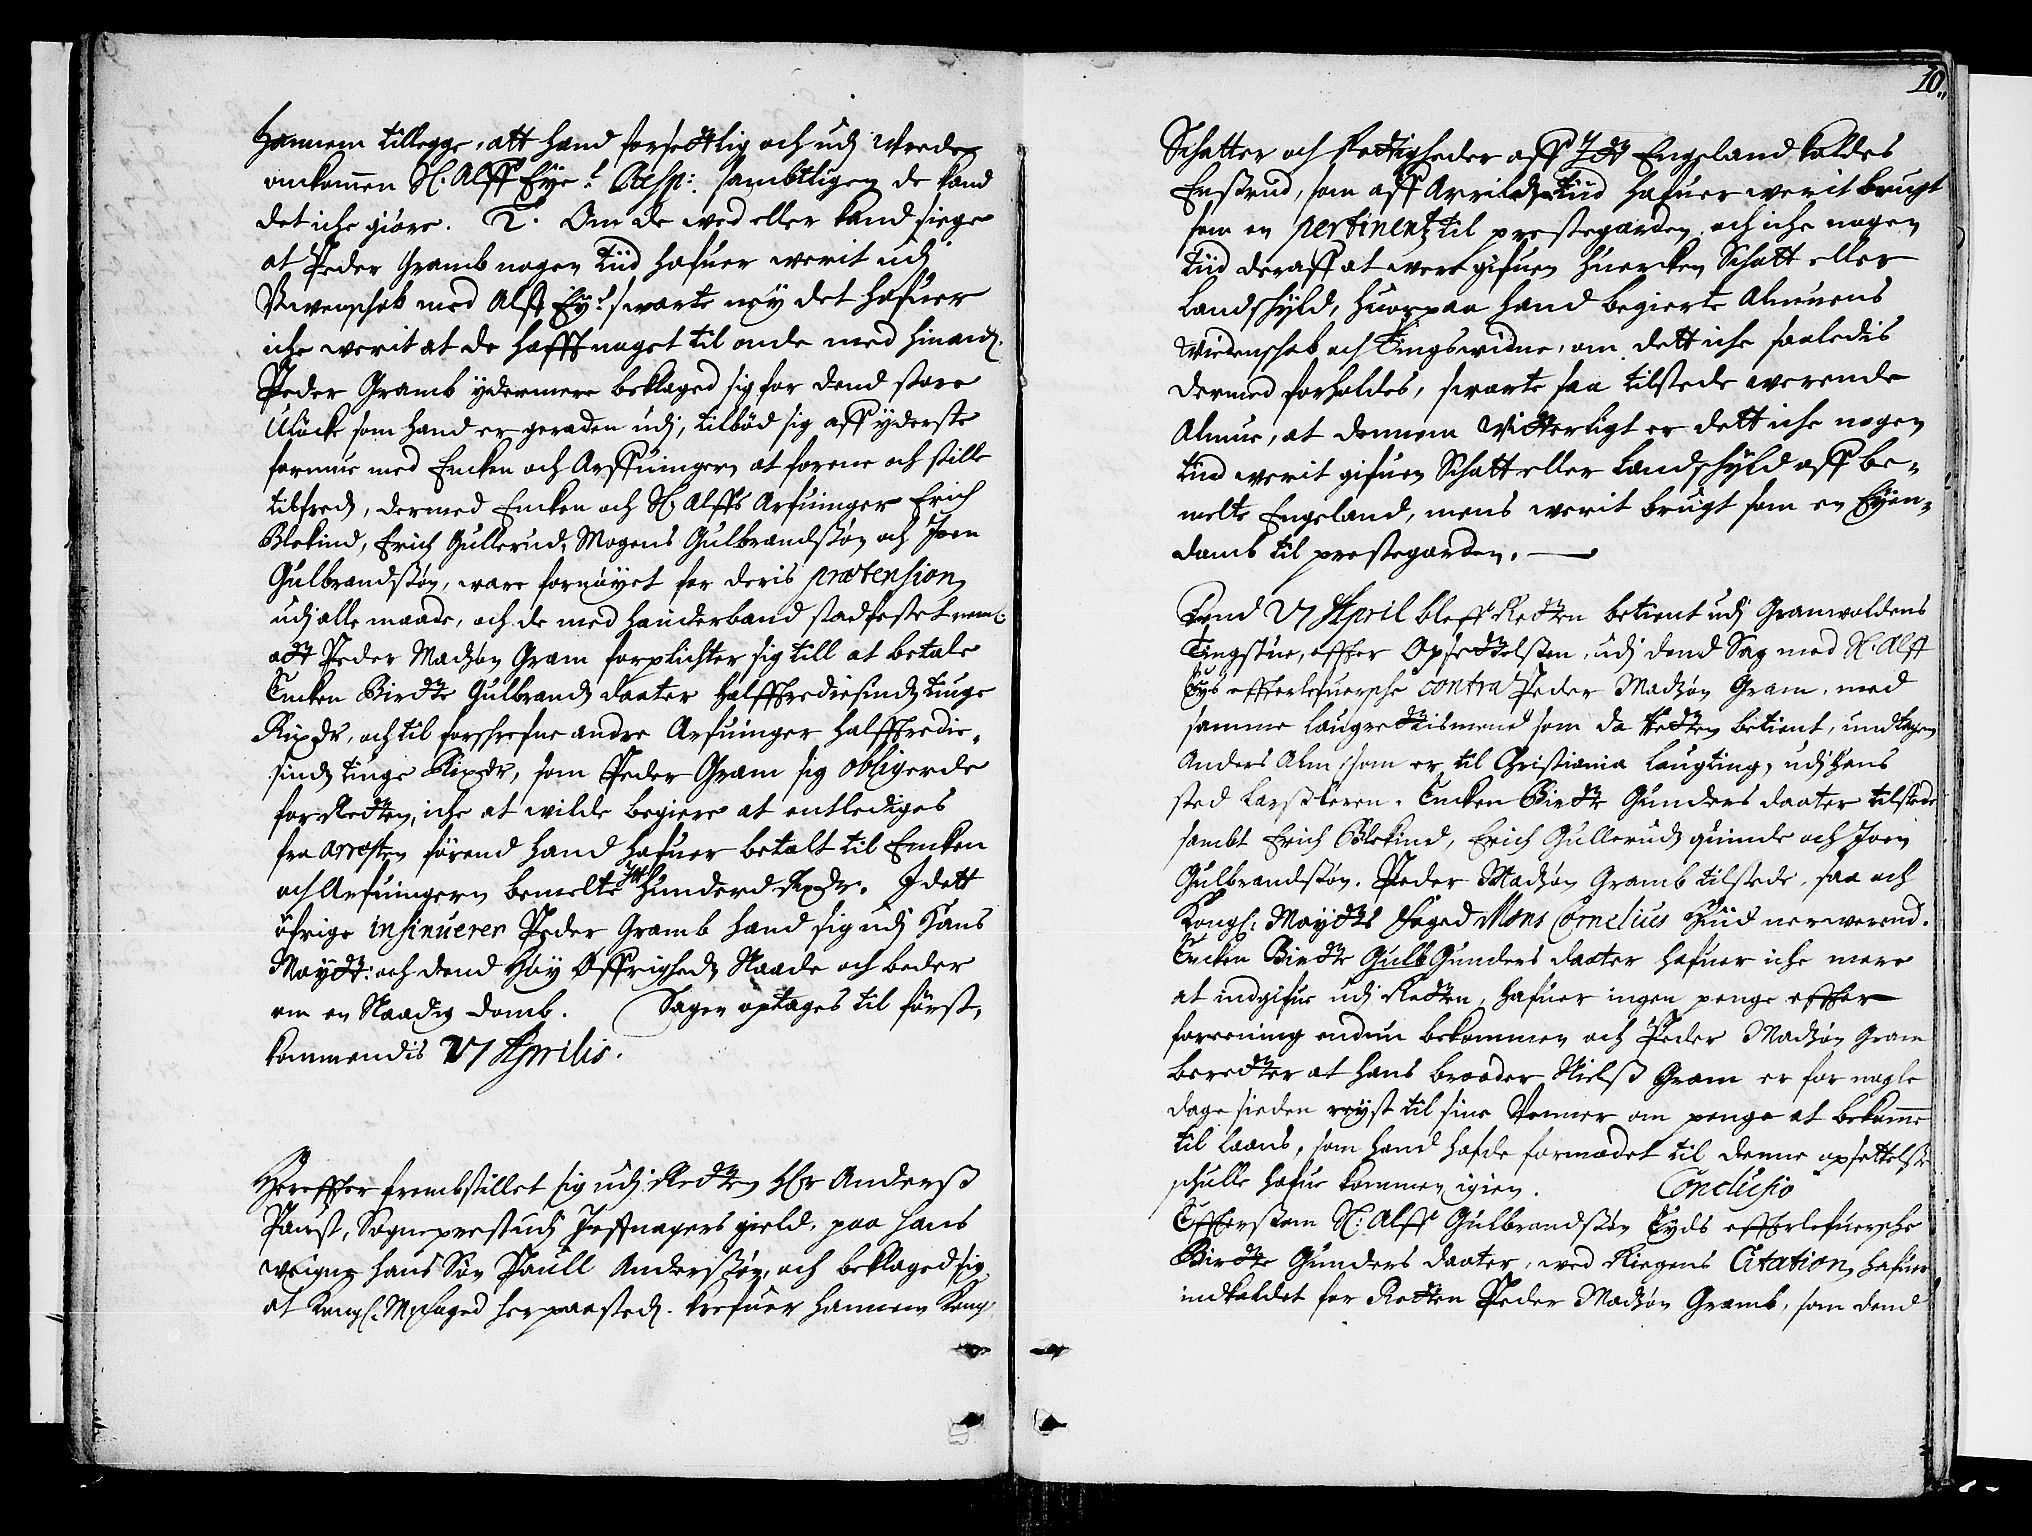 Hannem tillegge, att hand forsettlig och udj Vrede
omkommen Sl. Alff Eye? Resp: sambtligen de kand
det iche giøre. 2. Om de wed eller kand siege
at Peder Gramb nogen tiid hafuer werit udj
Uwenschab med Alff Ey? swarte ney det hafuer
iche werit at de hafft noget til onde med hinand.
Peder Gramb ydermere beklaged sig for dend store
Ulöcke som hand er geraden udj, tilböd sig aff yderste
formue med Encken och Arffuingern at forene och stille
tilfreds, dermed Encken och Sl. Alffs Arfuinger Erich
Blekind, Erich Gullerud, Mogens Gulbrandssøn och Joen
Gulbrandssøn, ware fornøyet for deris prætension
udj alle maade, och de med haanderband stadfestet neml.
att Peder Madsøn Gram forplichter sig till at betale
Encken Birdte Gulbrands daater halfftrediesinds tiuge
Rixdr, och til forschrefne andre Arfuinger halfftredie-
sinds tiuge Rixdr, som Peder Gram sig obligerde
for Retten, iche at wilde begiere at entlediges
fra arresten förend hand hafuer betalt til Encken
och Arfuingern bemelte Hunderd Rixdr. I dett
öfrige insinuerer Peder Gramb hand sig udj Hans
Maytt: och dend Høy Øffrigheds Naade och beder
om en Naadig domb. Sagen optages til först-
kommendis 27 Aprilis.
Herefter frembstillet sig udj Retten Hr Anderss
Paust, Sogneprest udj Jeffnagers gield, paa hans
weigne hans Søn Paull Anderssøn, och beklaged sig
at Kongl. M. foged her paasteds kræfuer hannem Kong.
10.
Schatter och Rettigheder aff It Engeland kaldes
Enstrud, som aff Arrildstiid hafuer werit brugt
som en pertinentz til prestegarden, och iche nogen
tiid deraff at were gifuen huercken Schatt eller
Landschyld, huorpaa hand begierte Almuens
Widenschab och Tingswidne, om dett iche saaledis
dermed forholdes, swarte saa tilstede werende
Almue, at dennem Witterligt er dett iche nogen
tiid werit gifuen Schatt eller Landschyld aff be-
melte Engeland, mens werit brugt som en Eyen-
domb til prestegarden.
Dend 27 April bleff Retten betient udj Granwoldens
Tingstue, effter Opsettelsen, udj dend Sag med Sl. Alff
Eys effterlefuersche contra Peder Madsøn Gram, med
samme laugrettismend som da Retten betient, undtagen
Anders Alm som er til Christiania laugting, udj hans
sted Lars. Encken Birdte Gunders daater tilstede
sambt Erich Blekind, Erich Gulleruds quinde och Joen
Gulbrandssøn. Peder Madsøn Gramb tilstede, saa och
Kongl: Maytts foged Mons Cornelius Hiid nerwerend.
Encken Birdte Gulb Gunders daater hafuer iche mere
at indgifue udj Retten, hafuer ingen penge effter
foreening endnu bekommen och Peder Madsøn Gram
beretter at hans brooder Nielss Gram er for nogle
dage sieden reyst til sine Venner om penge at bekomme
til laans, som hand hafde formodet til denne opsettelse
schulle hafue kommen igien. Conclusio
Effterssom Sl: Alff Gulbrandssøn Eyds effterlefuersche
Birdte Gunders daater, wed Riegens Citation hafuer
indkaldet for Retten Peder Madsøn Gramb, som dend